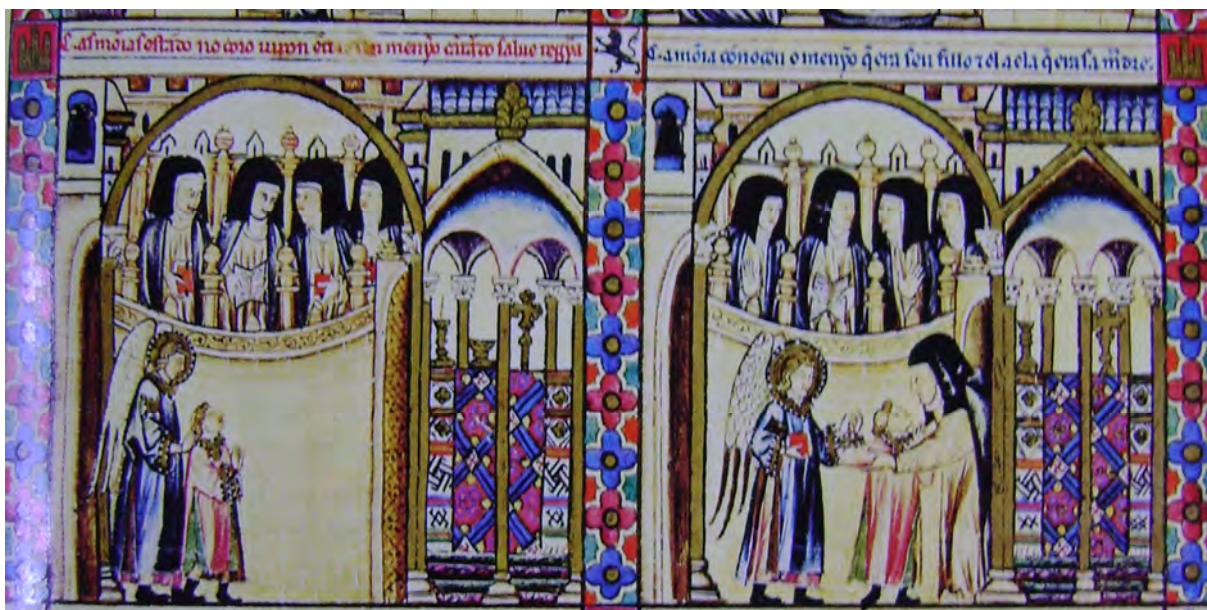 C. as mõias estãdo no coro uiron menỹo cãtãdo salue regỹa
C. a mõia cõnoceu o menỹo q̃ era seu fillo ⁊ el a ela q̃ era sa mr̃dre.